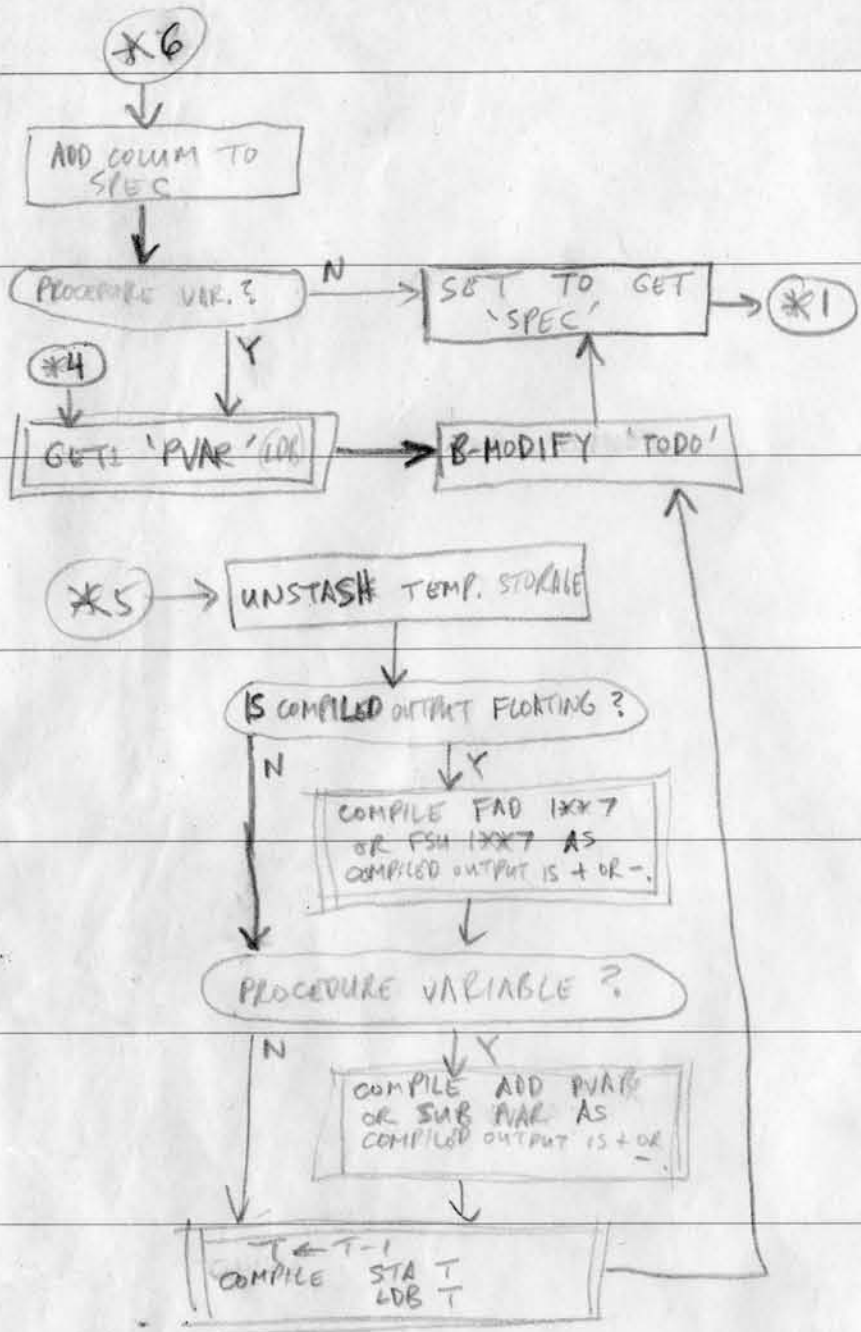 *6
ADD COLUM TO
SPEC
PROCEDURE VAR.?
N
SET TO GET
'SPEC'
*1
*4
Y
GET1 'PVAR' (LDB)
B-MODIFY 'TODO'
*5
UNSTASH TEMP. STORAGE
IS COMPILED OUTPUT FLOATING ?
N
Y
COMPILE FAD 1**7
OR FSU 1**7 AS
COMPILED OUTPUT IS + OR -.
PROCEDURE VARIABLE ?
N
Y
COMPILE ADD PVAR
OR SUB PVAR AS
COMPILED OUTPUT IS + OR
-.
T ← T-1
COMPILE STA T
LDB T